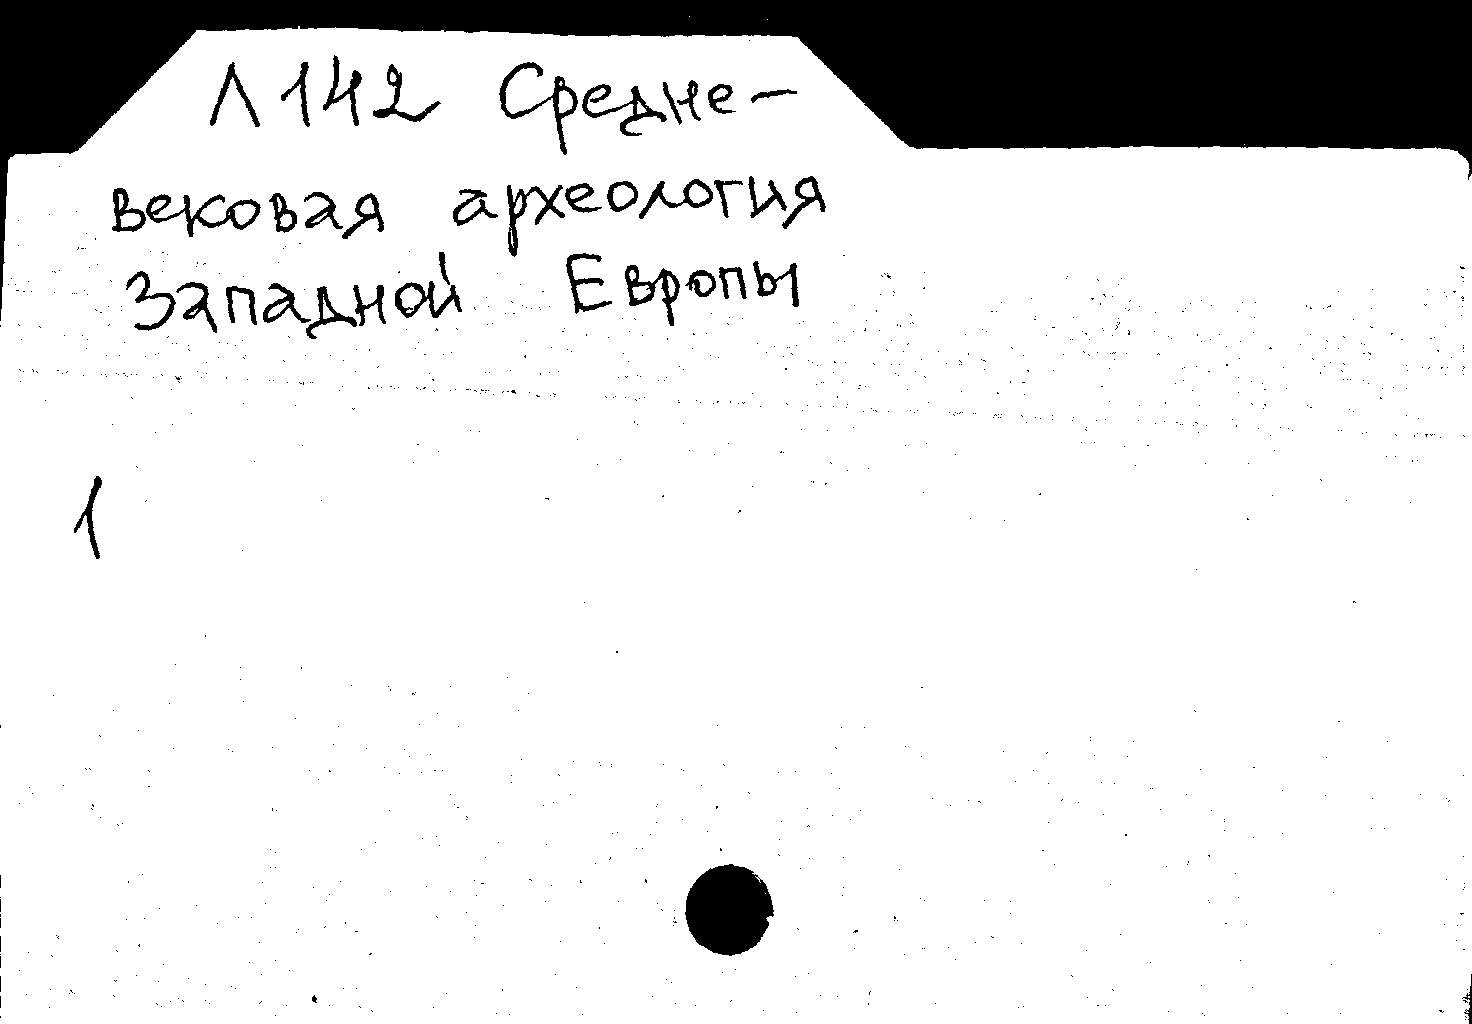 Л 142 Средне-
вековая археология
Западной Европы
1